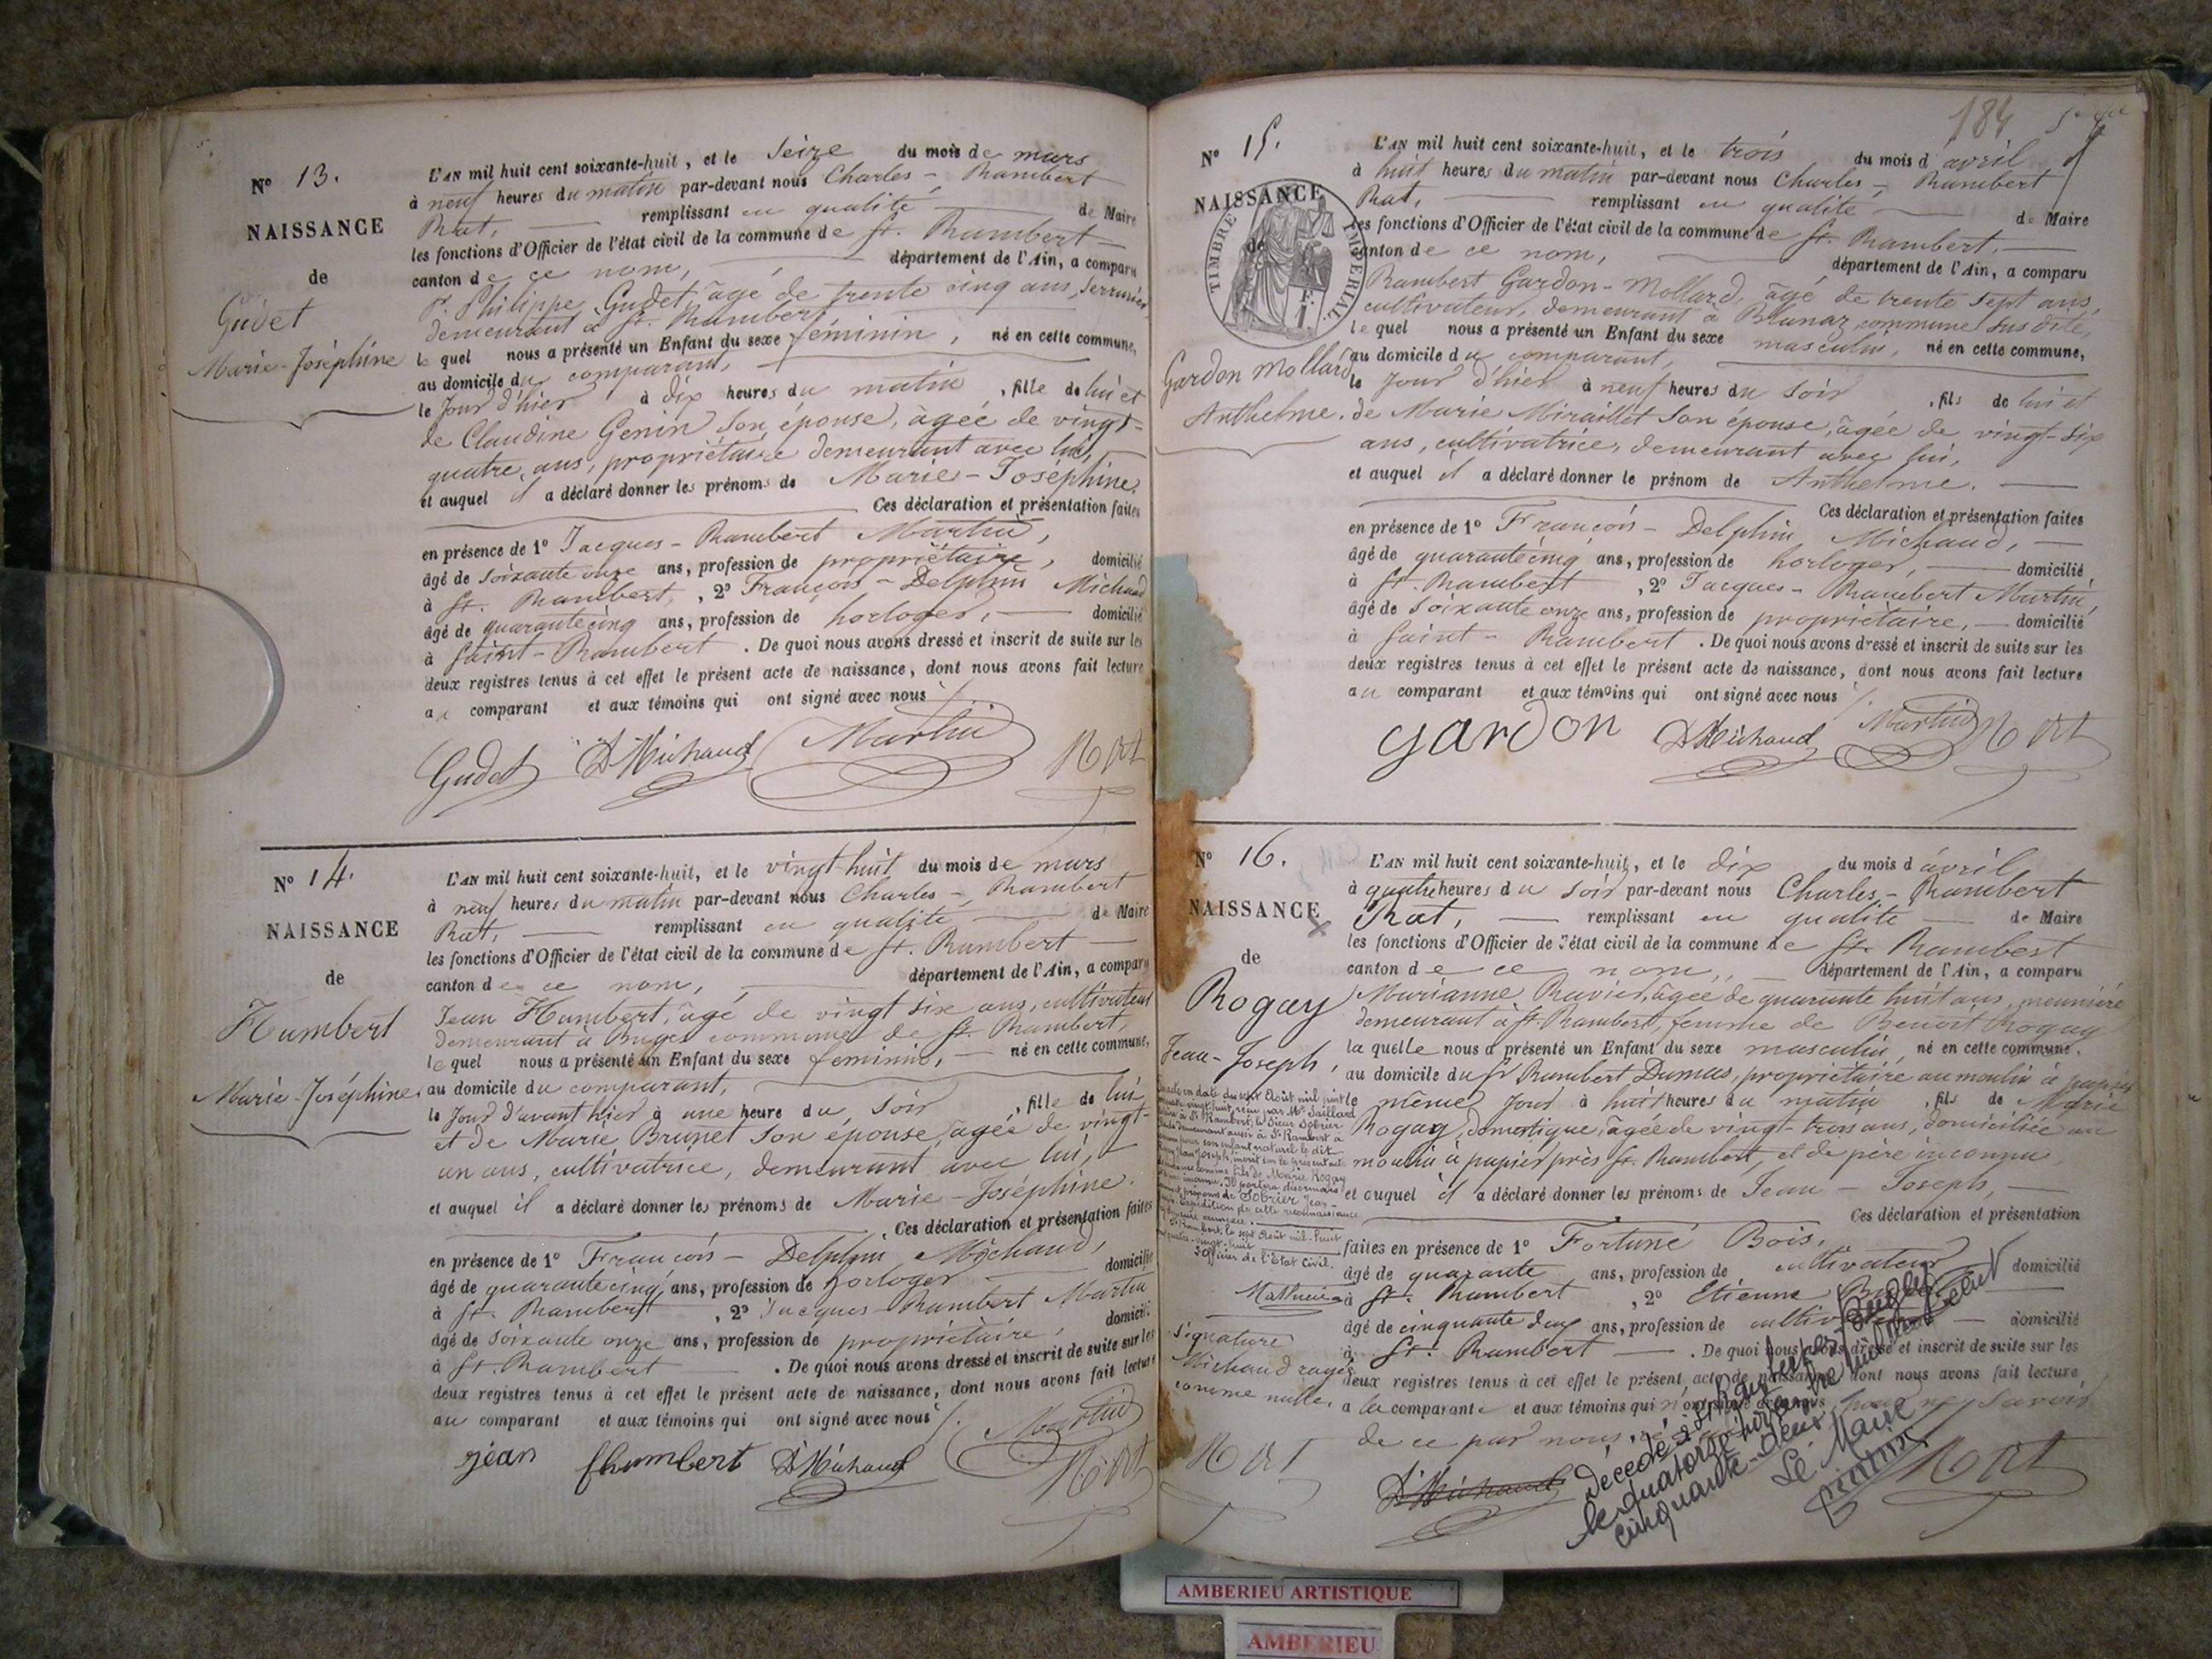 N° 13.
NAISSANCE
de
Gudet
Marie-Joséphine
L'AN mil huit cent soixante-huit, et le seize du mois de mars
à neuf heures du matin par-devant nous Charles-Rambert
Rat, remplissant en qualité de Maire
les fonctions d'Officier de l'état civil de la commune de St. Rambert
canton de ce nom, département de l'Ain, a comparu
Philippe Gudet, âgé de trente cinq ans, serrurier
demeurant à St. Rambert,
lequel nous a présenté un Enfant du sexe féminin, né en cette commune,
au domicile du comparant,
le jour d'hier à dix heures du matin, fille de lui et
de Claudine Genin son épouse, agée de vingt-
quatre ans, propriétaire demeurant avec lui,
et auquel il a déclaré donner les prénoms de Marie-Joséphine.
Ces déclaration et présentation faites
en présence de 1° Jacques-Rambert Martin,
âgé de soixante onze ans, profession de propriétaire, domicilié
à St. Rambert, 2° François-Delphin Michaud
âgé de quarante cinq ans, profession de horloger, domicilié
à Saint-Rambert. De quoi nous avons dressé et inscrit de suite sur les
deux registres tenus à cet effet le présent acte de naissance, dont nous avons fait lecture
au comparant et aux témoins qui ont signé avec nous
Gudet D Michaud Martin R Rat
N° 14.
NAISSANCE
de
Humbert
Marie-Joséphine
L'AN mil huit cent soixante-huit, et le vingt-huit du mois de mars
à neuf heures du matin par-devant nous Charles-Rambert
Rat, remplissant en qualité de Maire
les fonctions d'Officier de l'état civil de la commune de St. Rambert
canton de ce nom, département de l'Ain, a comparu
Jean Humbert, âgé de vingt six ans, cultivateur
demeurant à commune de St. Rambert,
lequel nous a présenté un Enfant du sexe féminin, né en cette commune,
au domicile du comparant,
le jour d'avant hier à une heure du soir, fille de lui
et de Marie Brunet son épouse, agée de vingt-
un ans, cultivatrice, demeurant avec lui,
et auquel il a déclaré donner les prénoms de Marie-Joséphine.
Ces déclaration et présentation faites
en présence de 1° François-Delphin Michaud,
âgé de quarante cinq ans, profession de horloger domicilié
à St. Rambert, 2° Jacques-Rambert Martin
âgé de soixante onze ans, profession de propriétaire, domicilié
à St. Rambert. De quoi nous avons dressé et inscrit de suite sur les
deux registres tenus à cet effet le présent acte de naissance, dont nous avons fait lecture
au comparant et aux témoins qui ont signé avec nous
Martin
jéan fhumbert D Michaud R Rat
184
N° 15.
NAISSANCE
de
TIMBRE IMPÉRIAL
Gardon Mollard
Anthelme.
L'AN mil huit cent soixante-huit, et le trois du mois d'avril
à huit heures du matin par-devant nous Charles-Rambert
Rat, remplissant en qualité de Maire
les fonctions d'Officier de l'état civil de la commune de St. Rambert,
canton de ce nom, département de l'Ain, a comparu
Rambert Gardon-Mollard, âgé de trente sept ans,
cultivateur, demeurant à Blanaz, commune susdite,
lequel nous a présenté un Enfant du sexe masculin, né en cette commune,
au domicile du comparant,
le jour d'hier à neuf heures du soir, fils de lui et
de Marie Miraillet son épouse, agée de vingt-six
ans, cultivatrice, demeurant avec lui,
et auquel il a déclaré donner le prénom de Anthelme.
Ces déclaration et présentation faites
en présence de 1° François-Delphin Michaud,
âgé de quarante cinq ans, profession de horloger, domicilié
à St. Rambert, 2° Jacques-Rambert Martin,
âgé de soixante onze ans, profession de propriétaire, domicilié
à Saint-Rambert. De quoi nous avons dressé et inscrit de suite sur les
deux registres tenus à cet effet le présent acte de naissance, dont nous avons fait lecture
au comparant et aux témoins qui ont signé avec nous
garDon D Michaud Martin R Rat
N° 16.
NAISSANCE
de
Rogay
Jean-Joseph,
L'AN mil huit cent soixante-huit, et le dix du mois d'avril
à quatre heures du soir par-devant nous Charles-Rambert
Rat, remplissant en qualité de Maire
les fonctions d'Officier de l'état civil de la commune de St. Rambert
canton de ce nom, département de l'Ain, a comparu
Marianne Ravier, agée de quarante huit ans, meunière
demeurant à St. Rambert, femme de Benoit Rogay
laquelle nous a présenté un Enfant du sexe masculin, né en cette commune,
au domicile du Sr Rambert Dumas, propriétaire au moulin à papier
le même jour à huit heures du matin, fils de Marie
Rogay, domestique, agée de vingt-trois ans, domiciliée au
moulin à papier près St. Rambert, et de père inconnu,
et auquel il a déclaré donner les prénoms de Jean-Joseph,
Ces déclaration et présentation
faites en présence de 1° Fortuné Bois,
âgé de quarante ans, profession de cultivateur domicilié
à St. Rambert, 2° Etienne
âgé de cinquante deux ans, profession de domicilié
à St. Rambert. De quoi nous avons dressé et inscrit de suite sur les
deux registres tenus à cet effet le présent acte de naissance, dont nous avons fait lecture
à la comparante et aux témoins qui n'ont signé
de ce par nous
D Michaud R Rat
en date du sept Août mil huit
reçu par Me Saillard
à St Rambert, le Sieur Sobrier
demeurant aussi à St Rambert a
pour son enfant naturel le dit
Jean Joseph, inscrit sur le présent acte
comme fils de Marie Rogay
inconnu. Il portera désormais
prénoms de Sobrier Jean-
expédition de cette reconnaissance
annexée.
St Rambert, le sept Août mil-huit
quatre-vingt-huit
l'Officier de l'Etat Civil.
Mathieu
Signature
Michaud rayée
comme nulle.
R Rat
Décédé à St Rambert
le quatorze novembre mil neuf cent
cinquante-deux
Le Maire
AMBERIEU ARTISTIQUE
AMBERIEU